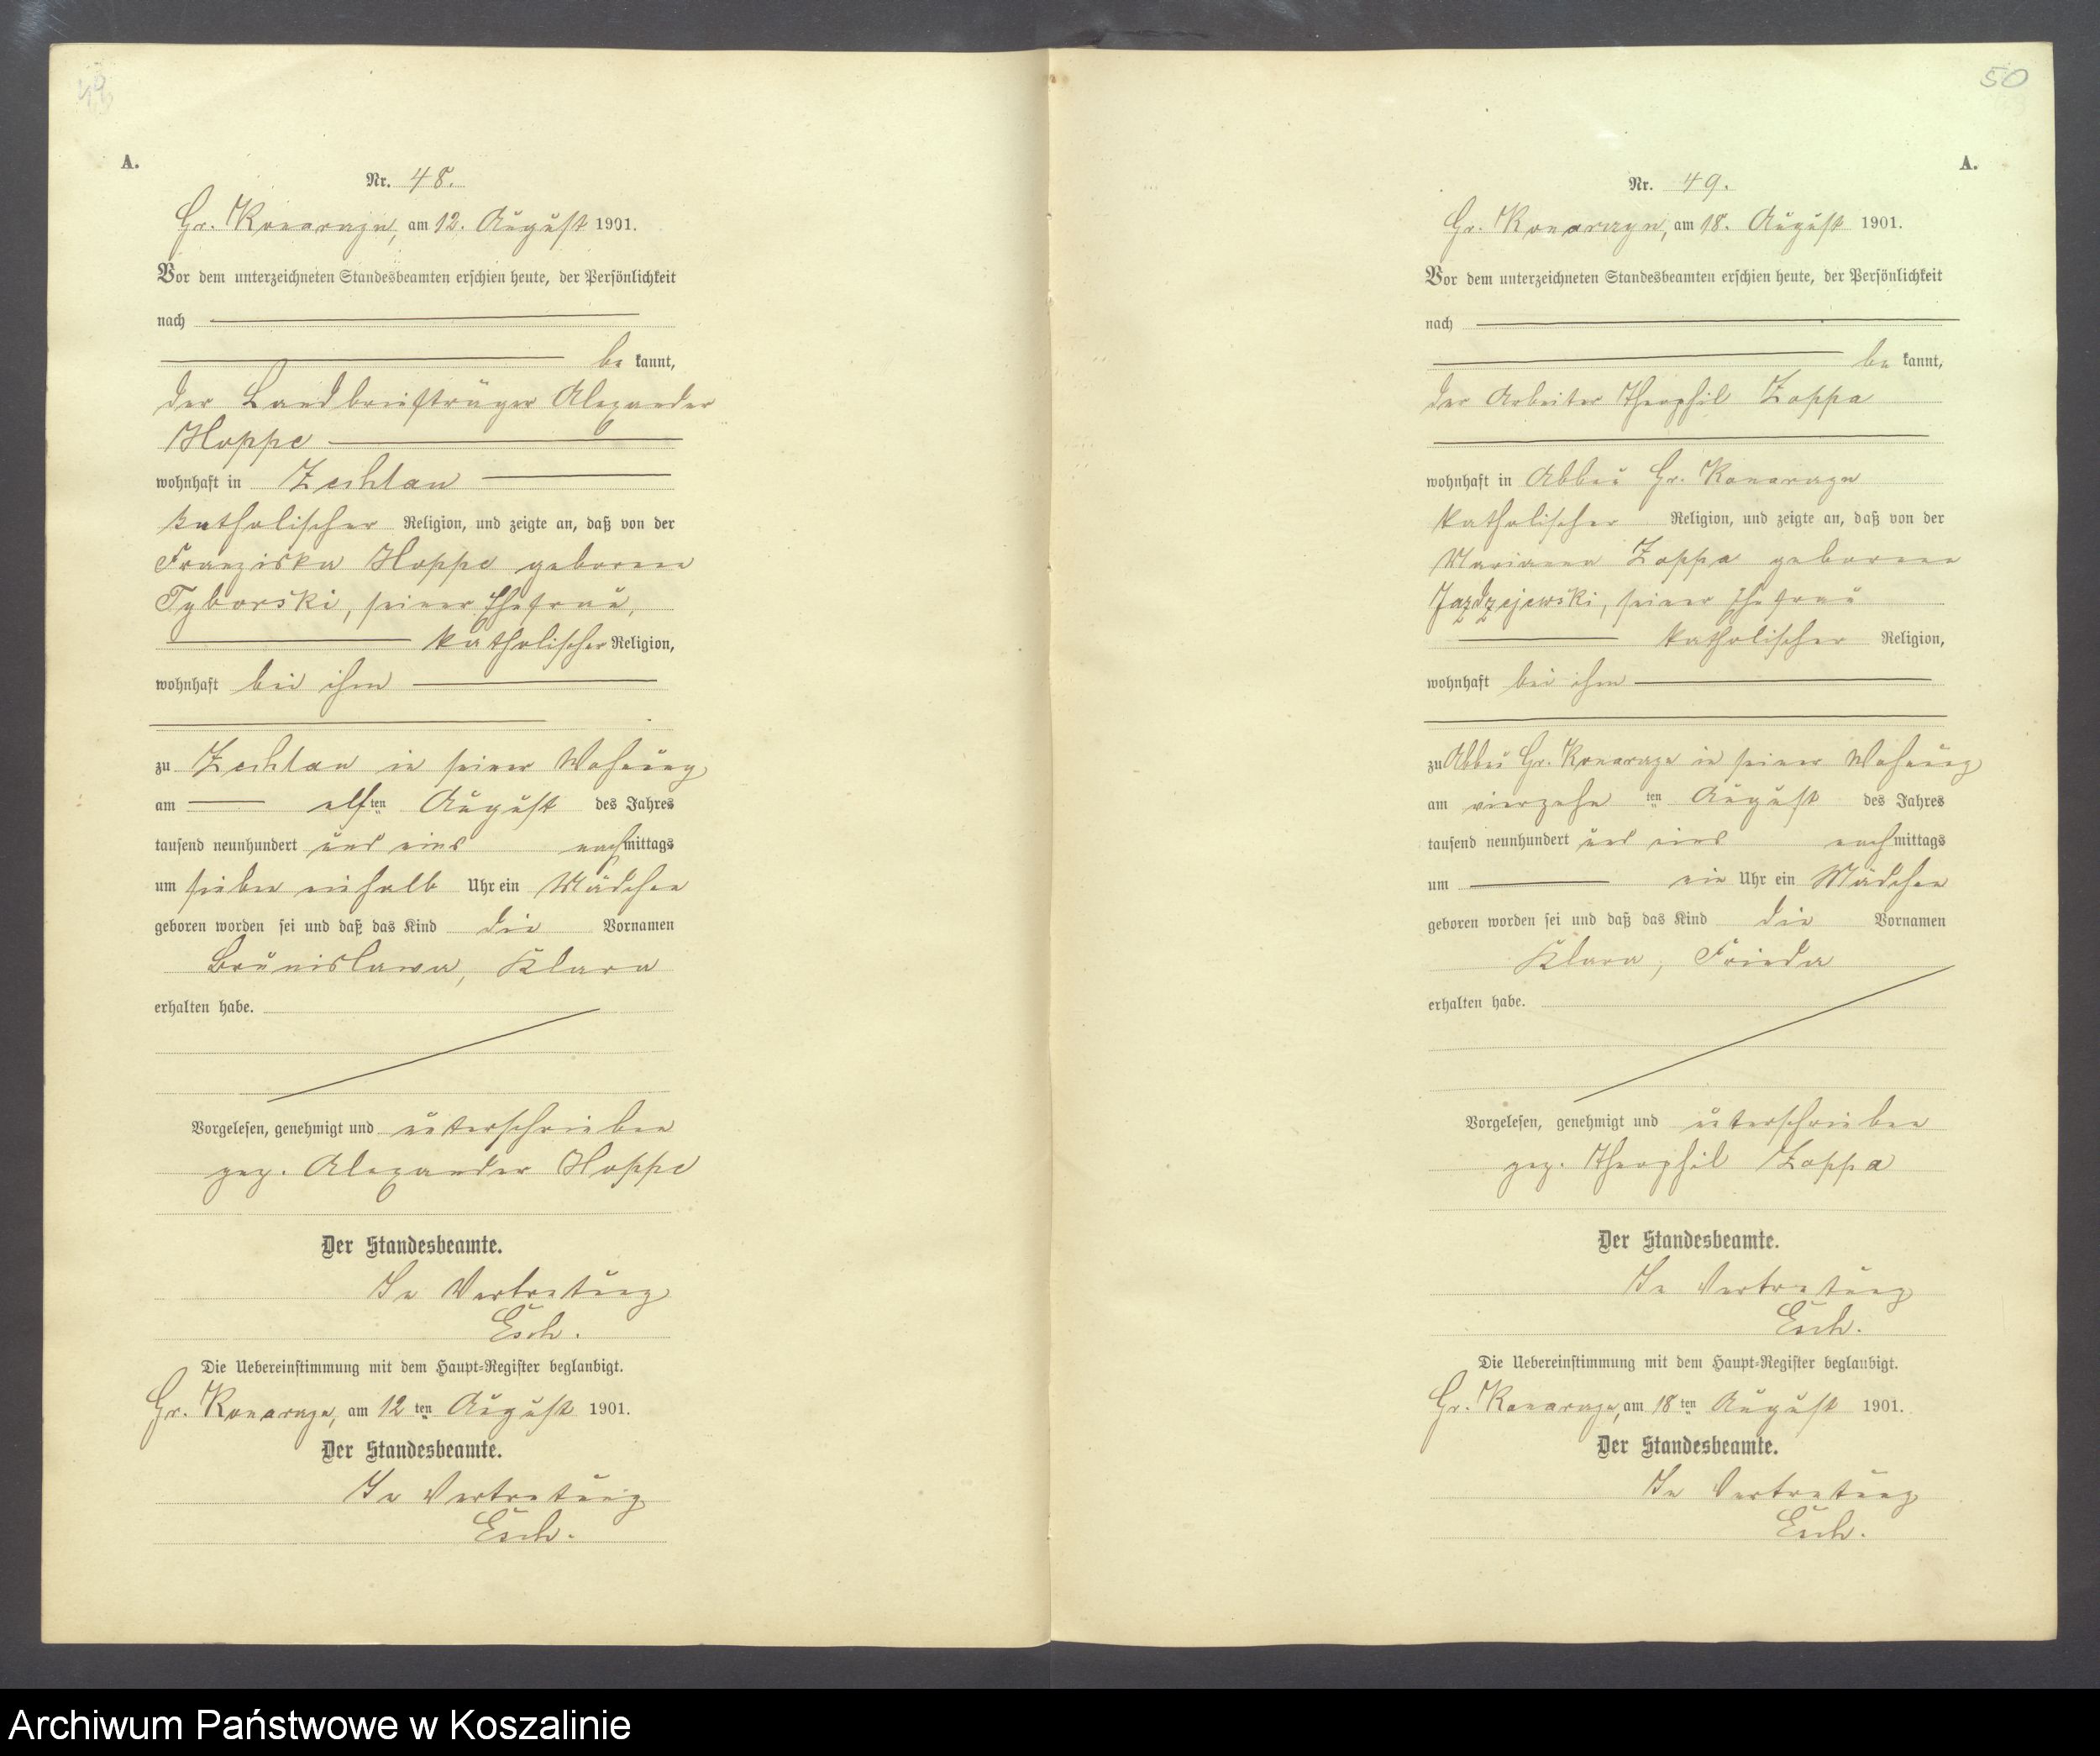 A.
Nr. 48.
Gr. Konarzyn, am 12. August 1901.
Vor dem unterzeichneten Standesbeamten erschien heute, der Persönlichkeit
nach
be kannt,
der Landbriefträger Alexander
Hoppe
wohnhaft in Zechlau
katholischer Religion, und zeigte an, daß von der
Franziska Hoppe geborene
Tyborski, seiner Ehefrau,
katholischer Religion,
wohnhaft bei ihm
zu Zechlau in seiner Wohnung
am elften August des Jahres
tausend neunhundert und eins nachmittags
um sieben einhalb Uhr ein Mädchen
geboren worden sei und daß das Kind die Vornamen
Brunislawa, Klara
erhalten habe.
Vorgelesen, genehmigt und unterschrieben
gez. Alexander Hoppe
Der Standesbeamte.
In Vertretung
Esch.
Die Uebereinstimmung mit dem Haupt-Register beglaubigt.
Gr. Konarzyn, am 12ten August 1901.
Der Standesbeamte.
In Vertretung
Esch.
50
A.
Nr. 49.
Gr. Konarzyn, am 18. August 1901.
Vor dem unterzeichneten Standesbeamten erschien heute, der Persönlichkeit
nach
be kannt,
der Arbeiter Theophil Zoppa
wohnhaft in Abbau Gr. Konarzyn
katholischer Religion, und zeigte an, daß von der
Marianna Zoppa geborene
Jazdzejewski, seiner Ehefrau
katholischer Religion,
wohnhaft bei ihm
zu Abbau Gr. Konarzyn in seiner Wohnung
am vierzehn ten August des Jahres
tausend neunhundert und eins nachmittags
um ein Uhr ein Mädchen
geboren worden sei und daß das Kind die Vornamen
Klara, Frieda
erhalten habe.
Vorgelesen, genehmigt und unterschrieben
gez. Theophil Zoppa
Der Standesbeamte.
In Vertretung
Esch.
Die Uebereinstimmung mit dem Haupt-Register beglaubigt.
Gr. Konarzyn, am 18ten August 1901.
Der Standesbeamte.
In Vertretung
Esch.
Archiwum Państwowe w Koszalinie